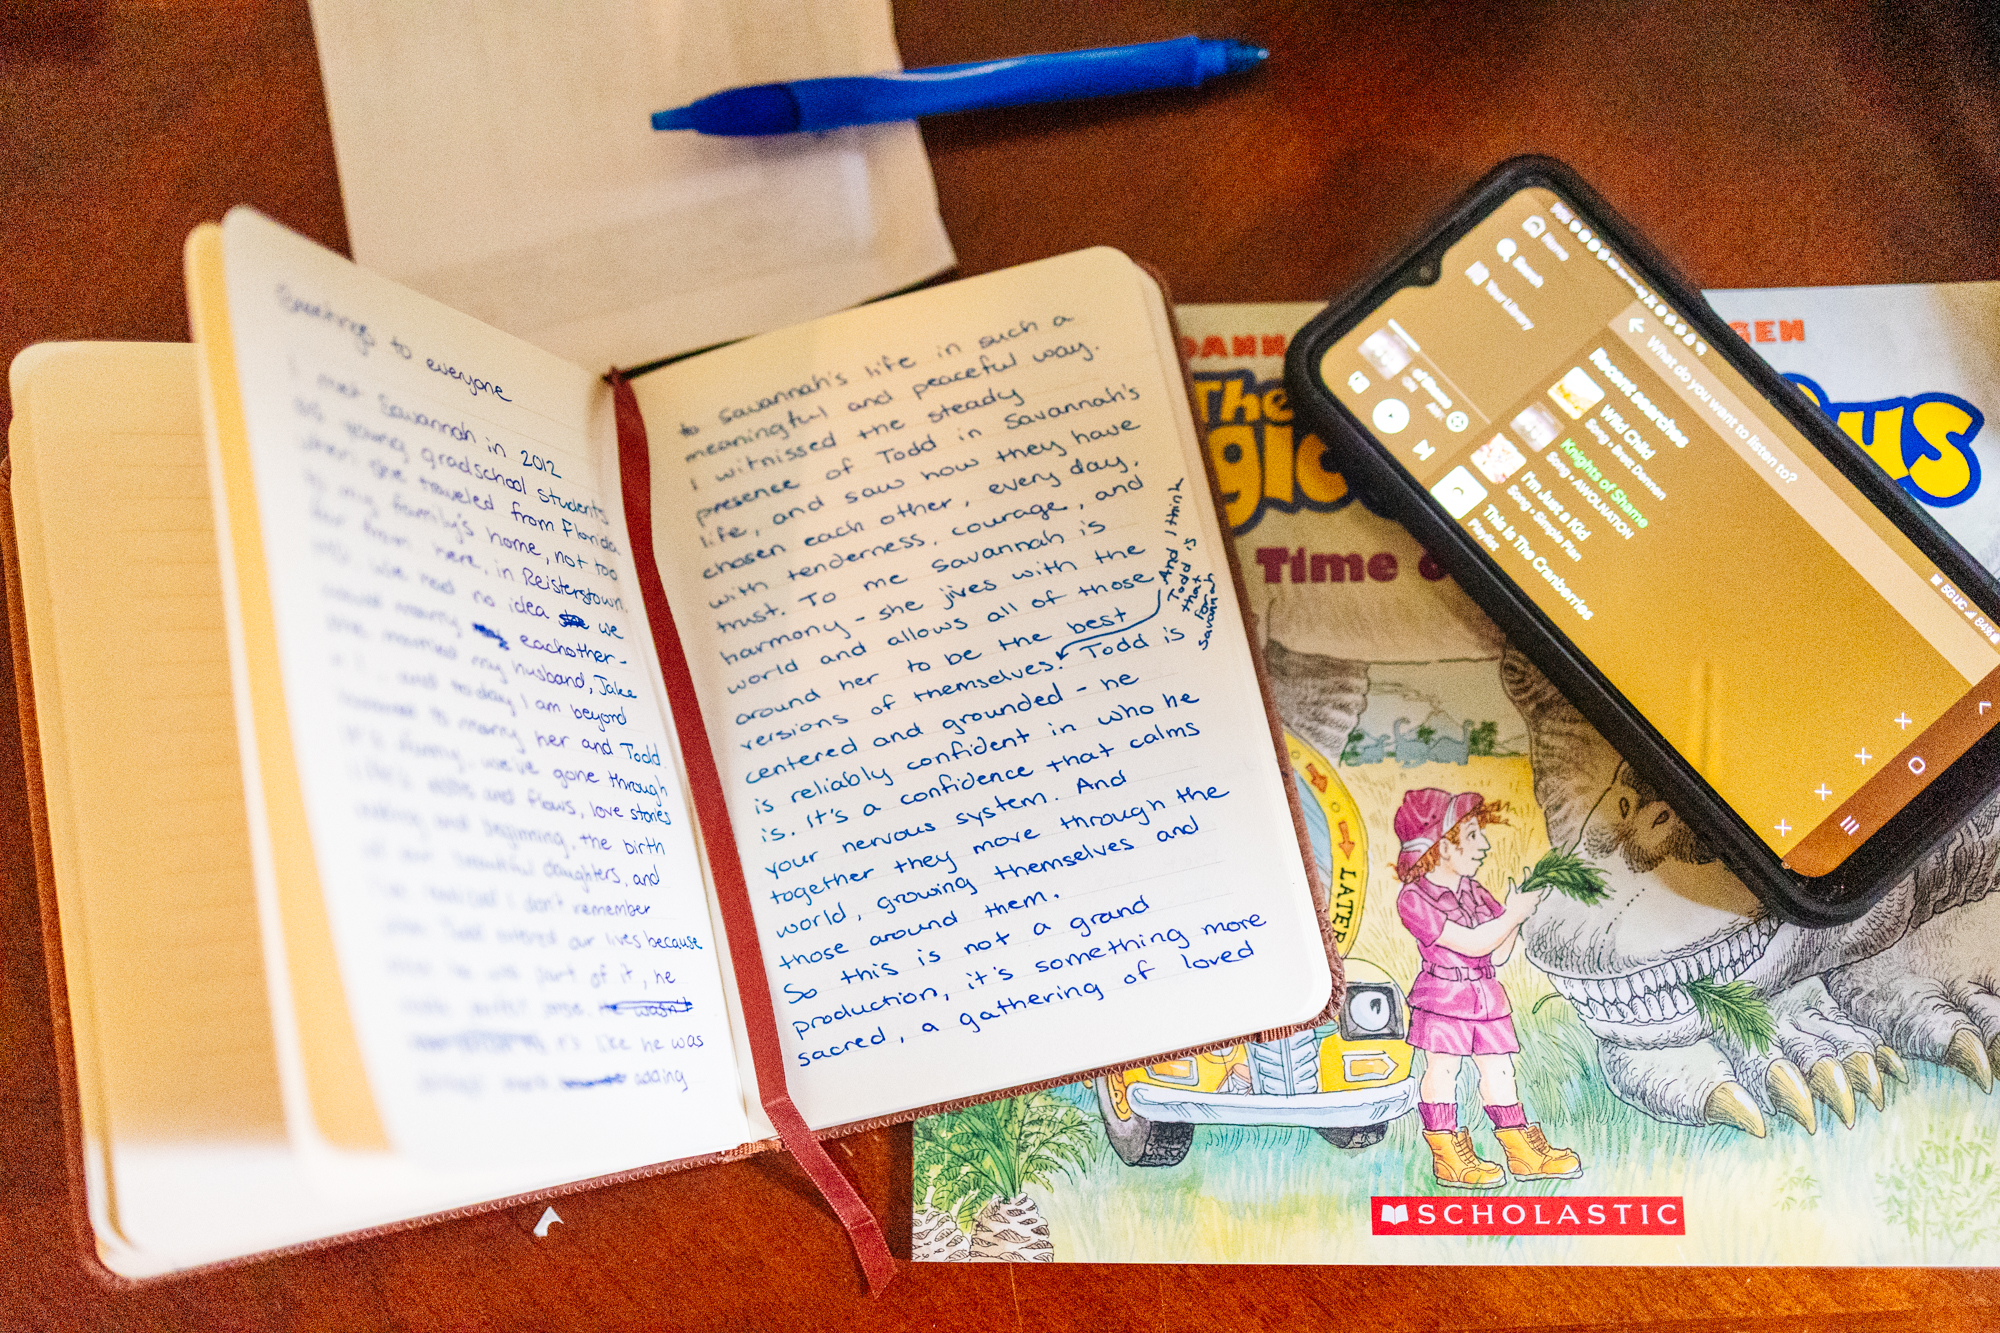 Greetings to everyone
I met Savannah in 2012
as young gradschool students
when she traveled from Florida
to my family's home, not too
far from here, in Reisterstown.
we had no idea we
would marry eachother-
married my husband, Jake
and today I am beyond
honored to marry her and Todd.
It's funny, we've gone through
life's ebbs and flows, love stories
ending and beginning, the birth
of our beautiful daughters, and
I don't remember
when Todd entered our lives because
he was part of it, he
made perfect sense. he wasn't
it's like he was
adding
to Savannah's life in such a
meaningful and peaceful way.
I witnissed the steady
presence of Todd in Savannah's
life, and saw how they have
chosen each other, every day,
with tenderness, courage, and
trust. To me Savannah is
harmony - she jives with the
world and allows all of those
around her to be the best
versions of themselves. Todd is
centered and grounded - he
is reliably confident in who he
is. It's a confidence that calms
your nervous system. And
together they move through the
world, growing themselves and
those around them.
So this is not a grand
production, it's something more
sacred, a gathering of loved
And I think
Todd is
that
for
Savannah
The
Time
LATER
SCHOLASTIC
Home
Search
Your Library
What do you want to listen to?
Recent searches
Wild Child
Song • Brett Dennen
Knights of Shame
Song • AWOLNATION
I'm Just a Kid
Song • Simple Plan
This Is The Cranberries
Playlist
5G UC
84%